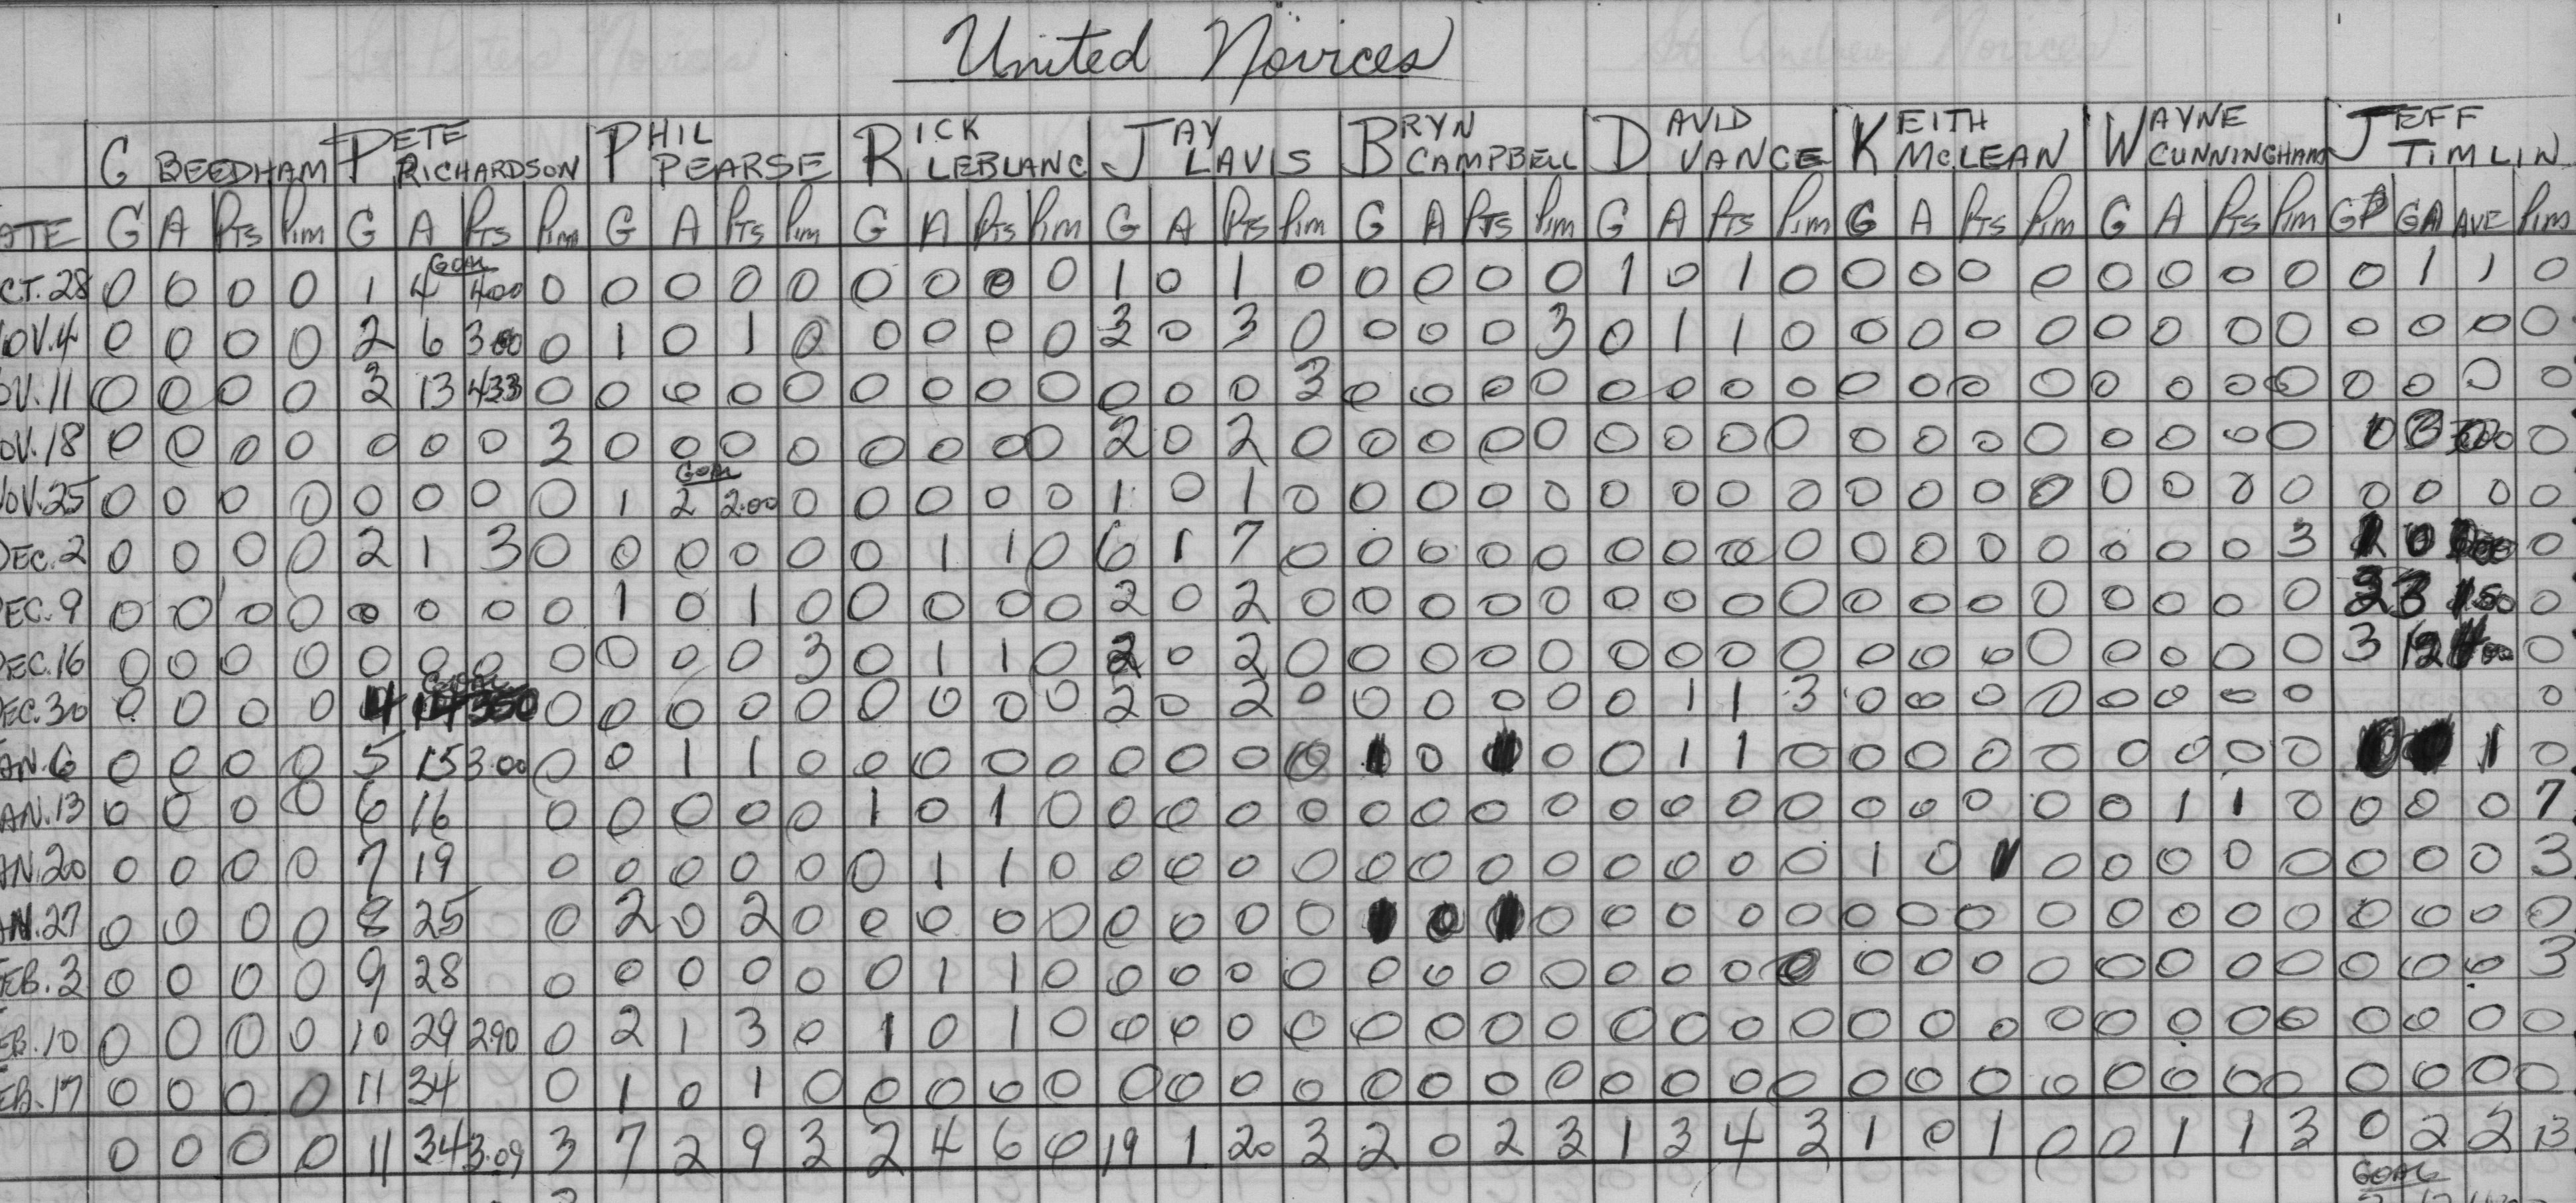 United Novices
G BEEDHAM PETE RICHARDSON PHIL PEARSE RICK LEBLANC JAY LAVIS BRYN CAMPBELL DAVID VANCE KEITH MCLEAN WAYNE CUNNINGHAM JEFF TIMLIN
ATE G A Pts Pim G A Pts Pim G A Pts Pim G A Pts Pim G A Pts Pim G A Pts Pim G A Pts Pim G A Pts Pim G A Pts Pim GP GA AVE Pim
Goal
CT.28 0 0 0 0 1 4 400 0 0 0 0 0 0 0 0 0 1 0 1 0 0 0 0 0 1 0 1 0 0 0 0 0 0 0 0 0 0 1 1 0
OV.4 0 0 0 0 2 6 300 0 1 0 1 0 0 0 0 0 3 0 3 0 0 0 0 3 0 1 1 0 0 0 0 0 0 0 0 0 0 0 0 0
OV.11 0 0 0 0 3 13 433 0 0 0 0 0 0 0 0 0 0 0 0 3 0 0 0 0 0 0 0 0 0 0 0 0 0 0 0 0 0 0 0 0
OV.18 0 0 0 0 0 0 0 3 0 0 0 0 0 0 0 0 2 0 2 0 0 0 0 0 0 0 0 0 0 0 0 0 0 0 0 0 0
Goal
OV.25 0 0 0 0 0 0 0 0 1 2 2.00 0 0 0 0 0 1 0 1 0 0 0 0 0 0 0 0 0 0 0 0 0 0 0 0 0 0 0 0 0
DEC.2 0 0 0 0 2 1 3 0 0 0 0 0 0 1 1 0 6 1 7 0 0 0 0 0 0 0 0 0 0 0 0 0 0 0 0 3 0
EC.9 0 0 0 0 0 0 0 0 1 0 1 0 0 0 0 0 2 0 2 0 0 0 0 0 0 0 0 0 0 0 0 0 0 0 0 0 3 0
EC.16 0 0 0 0 0 0 0 0 0 0 0 3 0 1 1 0 2 0 2 0 0 0 0 0 0 0 0 0 0 0 0 0 0 0 0 0 3 12 0
Goal
EC.30 0 0 0 0 4 14 350 0 0 0 0 0 0 0 0 0 2 0 2 0 0 0 0 0 0 1 1 3 0 0 0 0 0 0 0 0 0
AN.6 0 0 0 0 5 15 3.00 0 0 1 1 0 0 0 0 0 0 0 0 0 0 0 0 1 1 0 0 0 0 0 0 0 0 0 1 0
AN.13 0 0 0 0 6 16 0 0 0 0 0 1 0 1 0 0 0 0 0 0 0 0 0 0 0 0 0 0 0 0 0 0 1 1 0 0 0 0 7
AN.20 0 0 0 0 7 19 0 0 0 0 0 0 1 1 0 0 0 0 0 0 0 0 0 0 0 0 0 1 0 1 0 0 0 0 0 0 0 0 3
AN.27 0 0 0 0 8 25 0 2 0 2 0 0 0 0 0 0 0 0 0 0 0 0 0 0 0 0 0 0 0 0 0 0 0 0 0 0
EB.3 0 0 0 0 9 28 0 0 0 0 0 0 1 1 0 0 0 0 0 0 0 0 0 0 0 0 0 0 0 0 0 0 0 0 0 0 0 0 3
EB.10 0 0 0 0 10 29 2.90 0 2 1 3 0 1 0 1 0 0 0 0 0 0 0 0 0 0 0 0 0 0 0 0 0 0 0 0 0 0 0 0 0
EB.17 0 0 0 0 11 34 0 1 0 1 0 0 0 0 0 0 0 0 0 0 0 0 0 0 0 0 0 0 0 0 0 0 0 0 0 0 0 0 0
0 0 0 0 11 34 3.09 3 7 2 9 3 2 4 6 0 19 1 20 3 2 0 2 3 1 3 4 3 1 0 1 0 0 1 1 3 0 2 2 13
GOAL